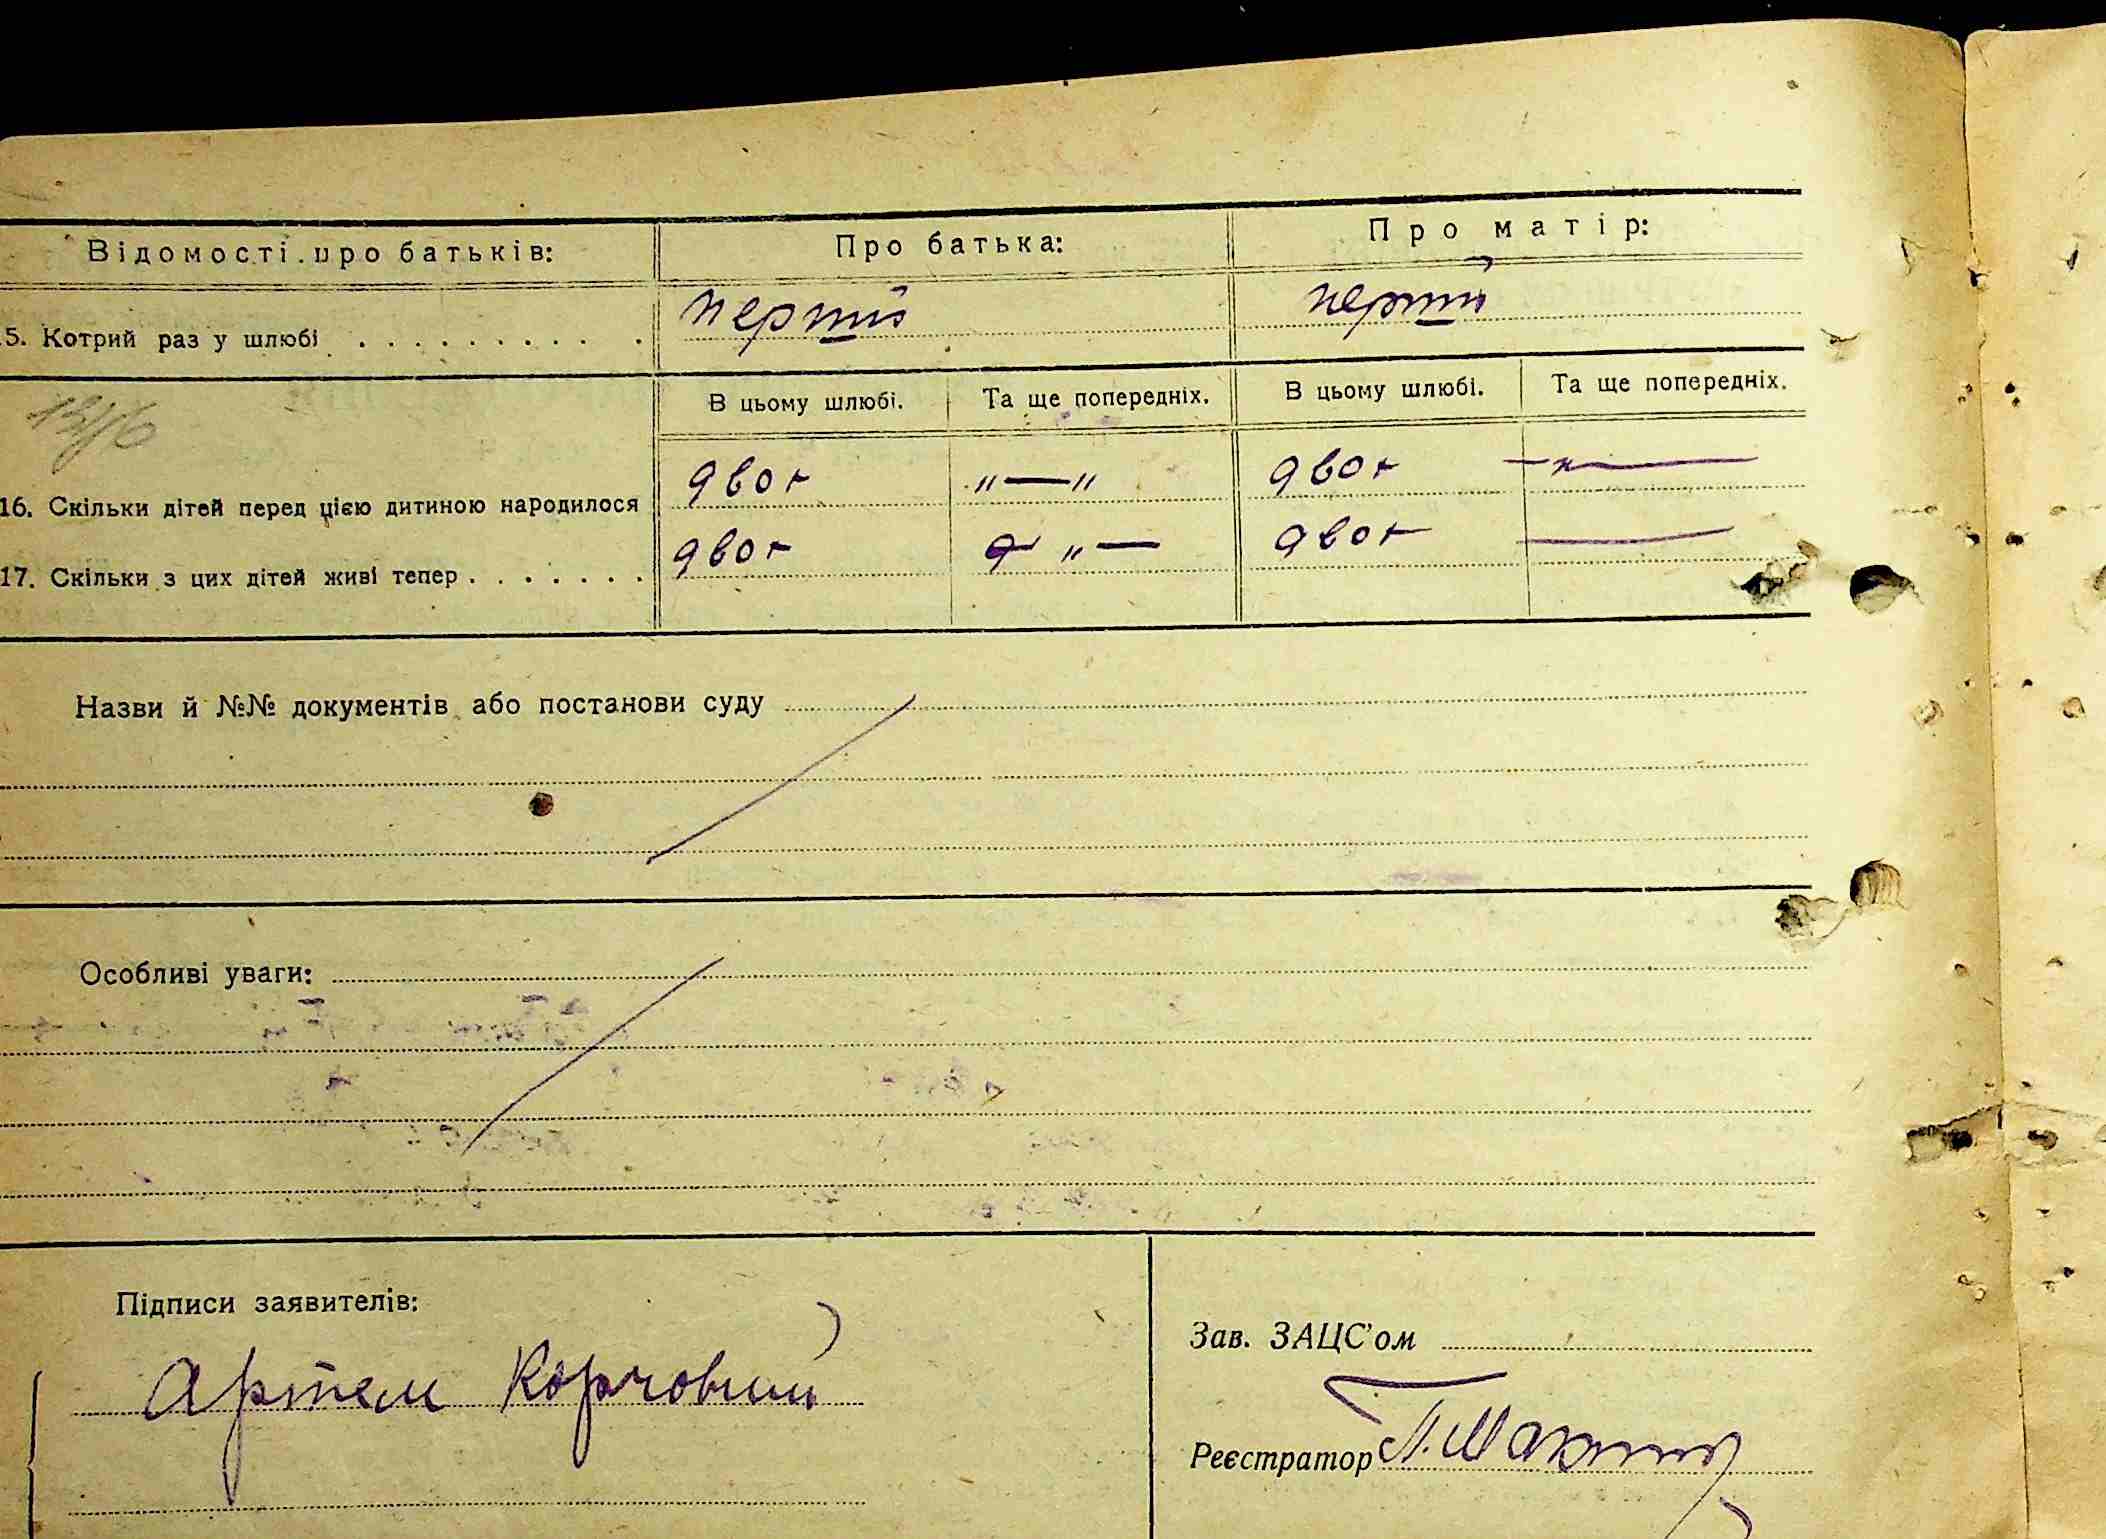 Відомості про батьків:
Про батька:
Про матір:
5. Котрий раз у шлюбі
перший
перший
В цьому шлюбі.
Та ще попередніх.
В цьому шлюбі.
Та ще попередніх.
16. Скільки дітей перед цією дитиною народилося
двох
"—"
двох
—"—
17. Скільки з цих дітей живі тепер
двох
"—
двох
—
Назви й №№ документів або постанови суду
Особливі уваги:
Підписи заявителів:
Артем Корчовий
Зав. ЗАЦС'ом
Реєстратор